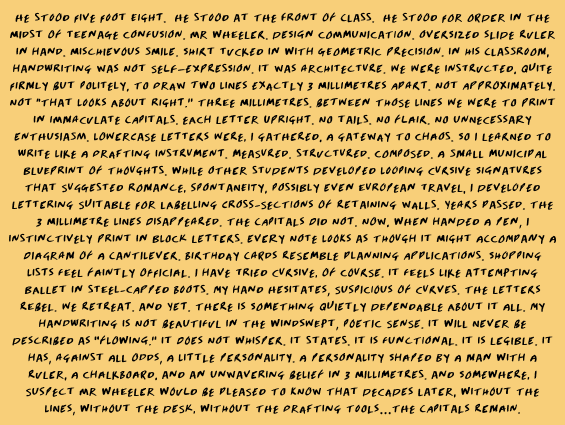 HE STOOD FIVE FOOT EIGHT. HE STOOD AT THE FRONT OF CLASS. HE STOOD FOR ORDER IN THE
MIDST OF TEENAGE CONFUSION. MR WHEELER. DESIGN COMMUNICATION. OVERSIZED SLIDE RULER
IN HAND. MISCHIEVOUS SMILE. SHIRT TUCKED IN WITH GEOMETRIC PRECISION. IN HIS CLASSROOM,
HANDWRITING WAS NOT SELF-EXPRESSION. IT WAS ARCHITECTURE. WE WERE INSTRUCTED, QUITE
FIRMLY BUT POLITELY, TO DRAW TWO LINES EXACTLY 3 MILLIMETRES APART. NOT APPROXIMATELY.
NOT "THAT LOOKS ABOUT RIGHT." THREE MILLIMETRES. BETWEEN THOSE LINES WE WERE TO PRINT
IN IMMACULATE CAPITALS. EACH LETTER UPRIGHT. NO TAILS. NO FLAIR. NO UNNECESSARY
ENTHUSIASM. LOWERCASE LETTERS WERE, I GATHERED, A GATEWAY TO CHAOS. SO I LEARNED TO
WRITE LIKE A DRAFTING INSTRUMENT. MEASURED. STRUCTURED. COMPOSED. A SMALL MUNICIPAL
BLUEPRINT OF THOUGHTS. WHILE OTHER STUDENTS DEVELOPED LOOPING CURSIVE SIGNATURES
THAT SUGGESTED ROMANCE, SPONTANEITY, POSSIBLY EVEN EUROPEAN TRAVEL, I DEVELOPED
LETTERING SUITABLE FOR LABELLING CROSS-SECTIONS OF RETAINING WALLS. YEARS PASSED. THE
3 MILLIMETRE LINES DISAPPEARED. THE CAPITALS DID NOT. NOW, WHEN HANDED A PEN, I
INSTINCTIVELY PRINT IN BLOCK LETTERS. EVERY NOTE LOOKS AS THOUGH IT MIGHT ACCOMPANY A
DIAGRAM OF A CANTILEVER. BIRTHDAY CARDS RESEMBLE PLANNING APPLICATIONS. SHOPPING
LISTS FEEL FAINTLY OFFICIAL. I HAVE TRIED CURSIVE, OF COURSE. IT FEELS LIKE ATTEMPTING
BALLET IN STEEL-CAPPED BOOTS. MY HAND HESITATES, SUSPICIOUS OF CURVES. THE LETTERS
REBEL. WE RETREAT. AND YET. THERE IS SOMETHING QUIETLY DEPENDABLE ABOUT IT ALL. MY
HANDWRITING IS NOT BEAUTIFUL IN THE WINDSWEPT, POETIC SENSE. IT WILL NEVER BE
DESCRIBED AS "FLOWING." IT DOES NOT WHISPER. IT STATES. IT IS FUNCTIONAL. IT IS LEGIBLE. IT
HAS, AGAINST ALL ODDS, A LITTLE PERSONALITY. A PERSONALITY SHAPED BY A MAN WITH A
RULER, A CHALKBOARD, AND AN UNWAVERING BELIEF IN 3 MILLIMETRES. AND SOMEWHERE, I
SUSPECT MR WHEELER WOULD BE PLEASED TO KNOW THAT DECADES LATER, WITHOUT THE
LINES, WITHOUT THE DESK, WITHOUT THE DRAFTING TOOLS...THE CAPITALS REMAIN.